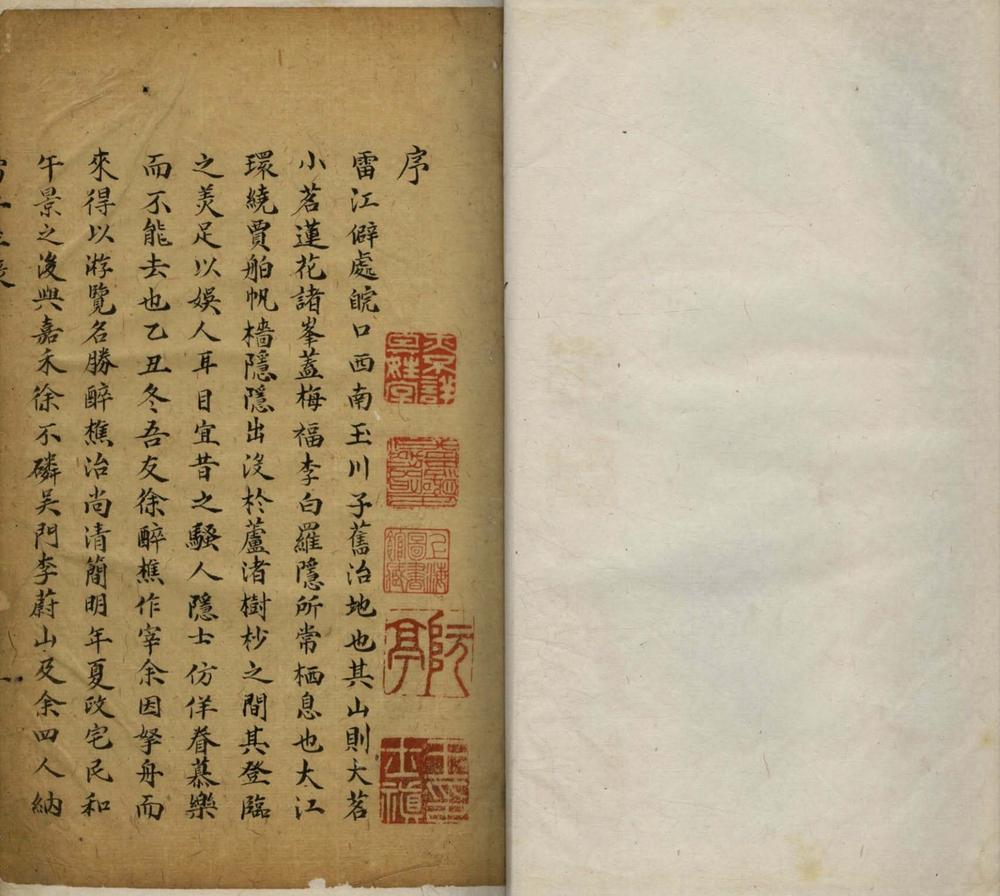 序
雷江僻處皖口西南玉川子舊治地也其山則大茗
小茗蓮花諸峯蓋梅福李白羅隱所常栖息也大江
環繞賈舶帆檣隱隱出沒於蘆渚樹杪之間其登臨
之美足以娛人耳目宜昔之騷人隱士仿佯眷慕樂
而不能去也乙丑冬吾友徐醉樵作宰余因拏舟而
來得以游覽名勝醉樵治尚清簡明年夏政宅民和
午景之後與嘉禾徐不磷吳門李蔚山及余四人納
上海圖書館藏
阮亭